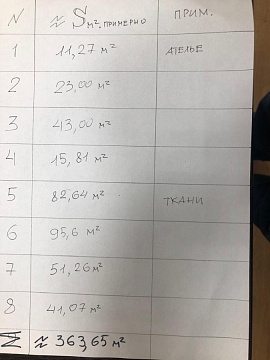 N ≈ S м². ПРИМЕРНО ПРИМ.
1 11,27 м² АТЕЛЬЕ
2 23,00 м²
3 43,00 м²
4 15,81 м²
5 82,64 м² ТКАНИ
6 95,6 м²
7 51,26 м²
8 41,07 м²
Σ ≈ 363,65 м²